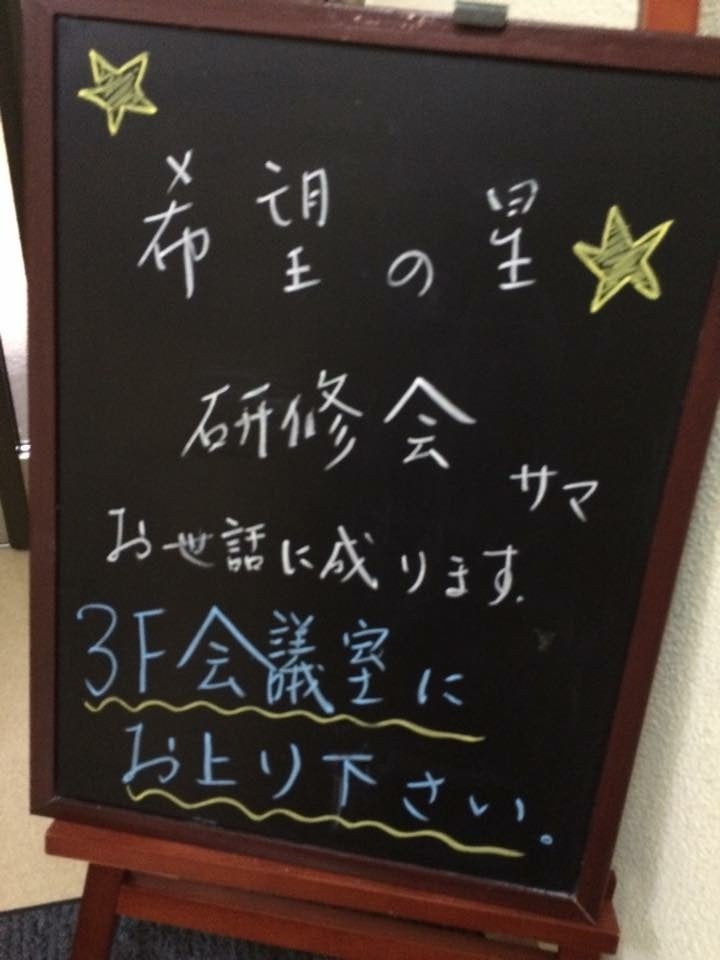 希望の星
研修会
サマ
お世話に成ります.
3F会議室に
お上り下さい。